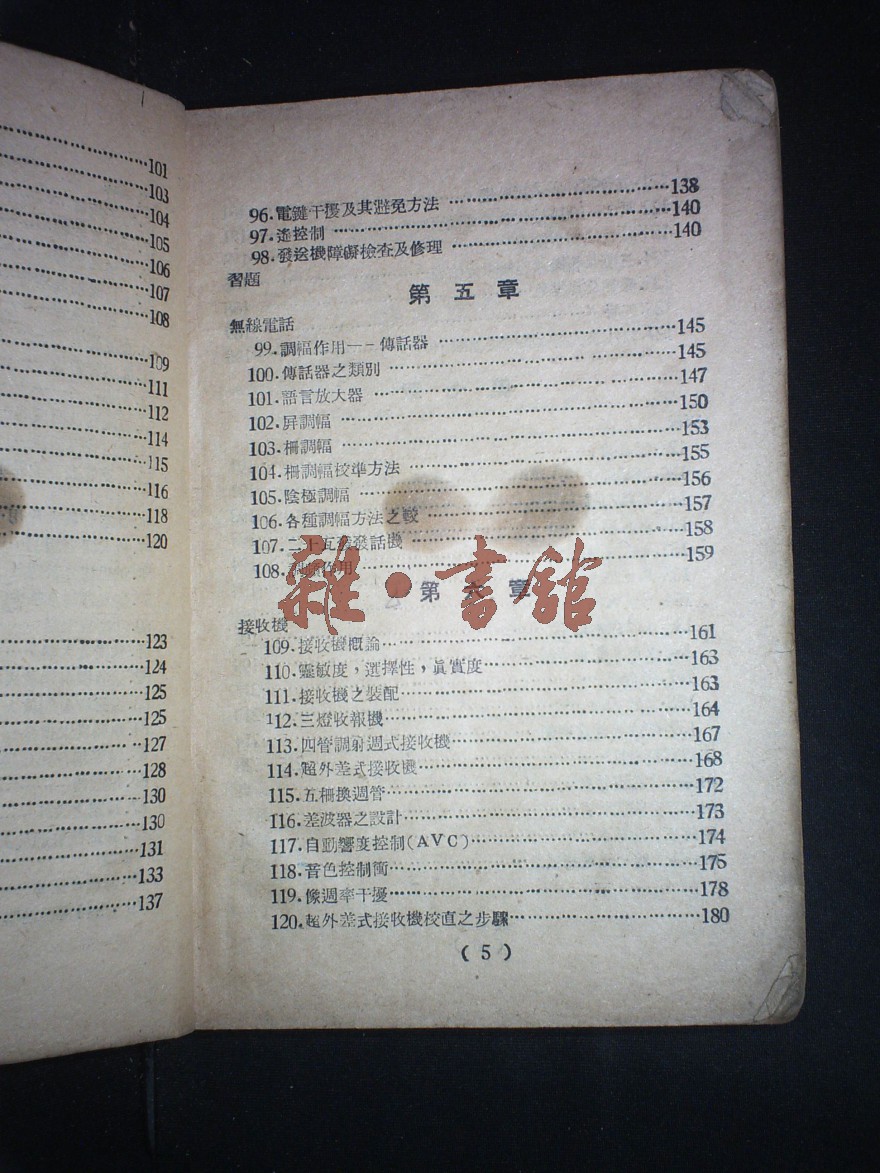 101
103
104
105
106
107
108
109
111
112
114
115
116
118
120
123
124
125
125
127
128
130
130
131
133
137
96.電鍵干擾及其避免方法……138
97.遙控制……140
98.發送機障礙檢查及修理……140
習題
第五章
無線電話
99.調幅作用——傳話器……145
100.傳話器之類別……145
101.語言放大器……147
102.屏調幅……150
103.柵調幅……153
104.柵調幅校準方法……155
105.陰極調幅……156
106.各種調幅方法之較……157
107.二十五發話機……158
108.作用……159
雜·書館
第六章
接收機
109.接收機概論……161
110.靈敏度，選擇性，眞實度……163
111.接收機之裝配……163
112.三燈收報機……164
113.四管調射週式接收機……167
114.超外差式接收機……168
115.五柵換週管……172
116.差波器之設計……173
117.自動響度控制(AVC)……174
118.音色控制衝……175
119.像週率干擾……178
120.超外差式接收機校直之步驟……180
(5)